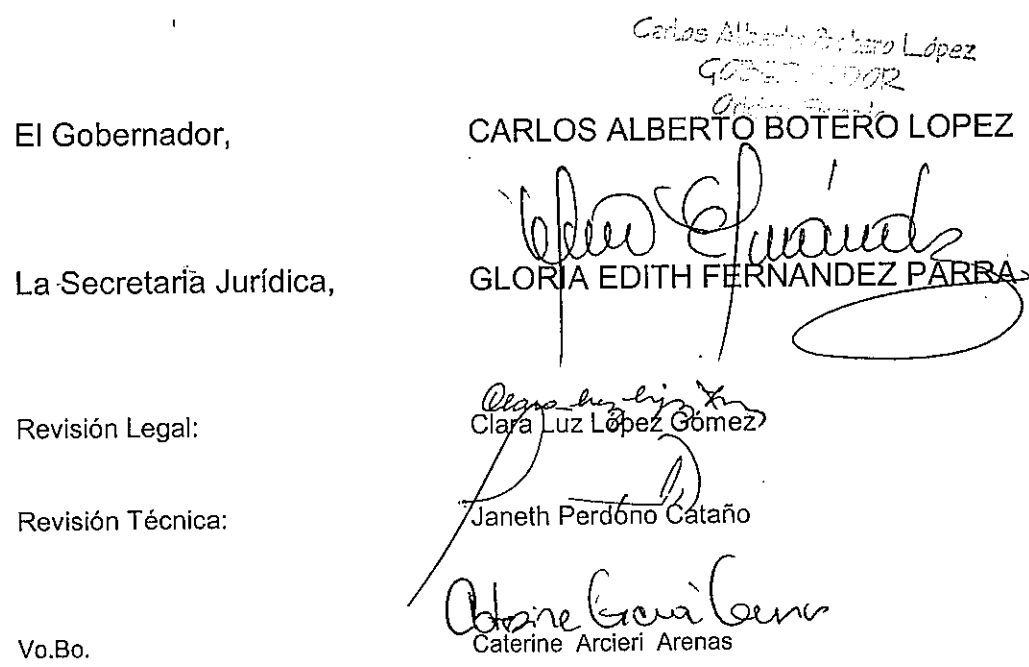 Carlos Alberto Botero López
GOBERNADOR
El Gobernador, CARLOS ALBERTO BOTERO LOPEZ
La Secretaria Jurídica, GLORIA EDITH FERNANDEZ PARRA
Revisión Legal: Clara Luz López Gómez
Revisión Técnica: Janeth Perdono Cataño
Vo.Bo. Caterine Arcieri Arenas